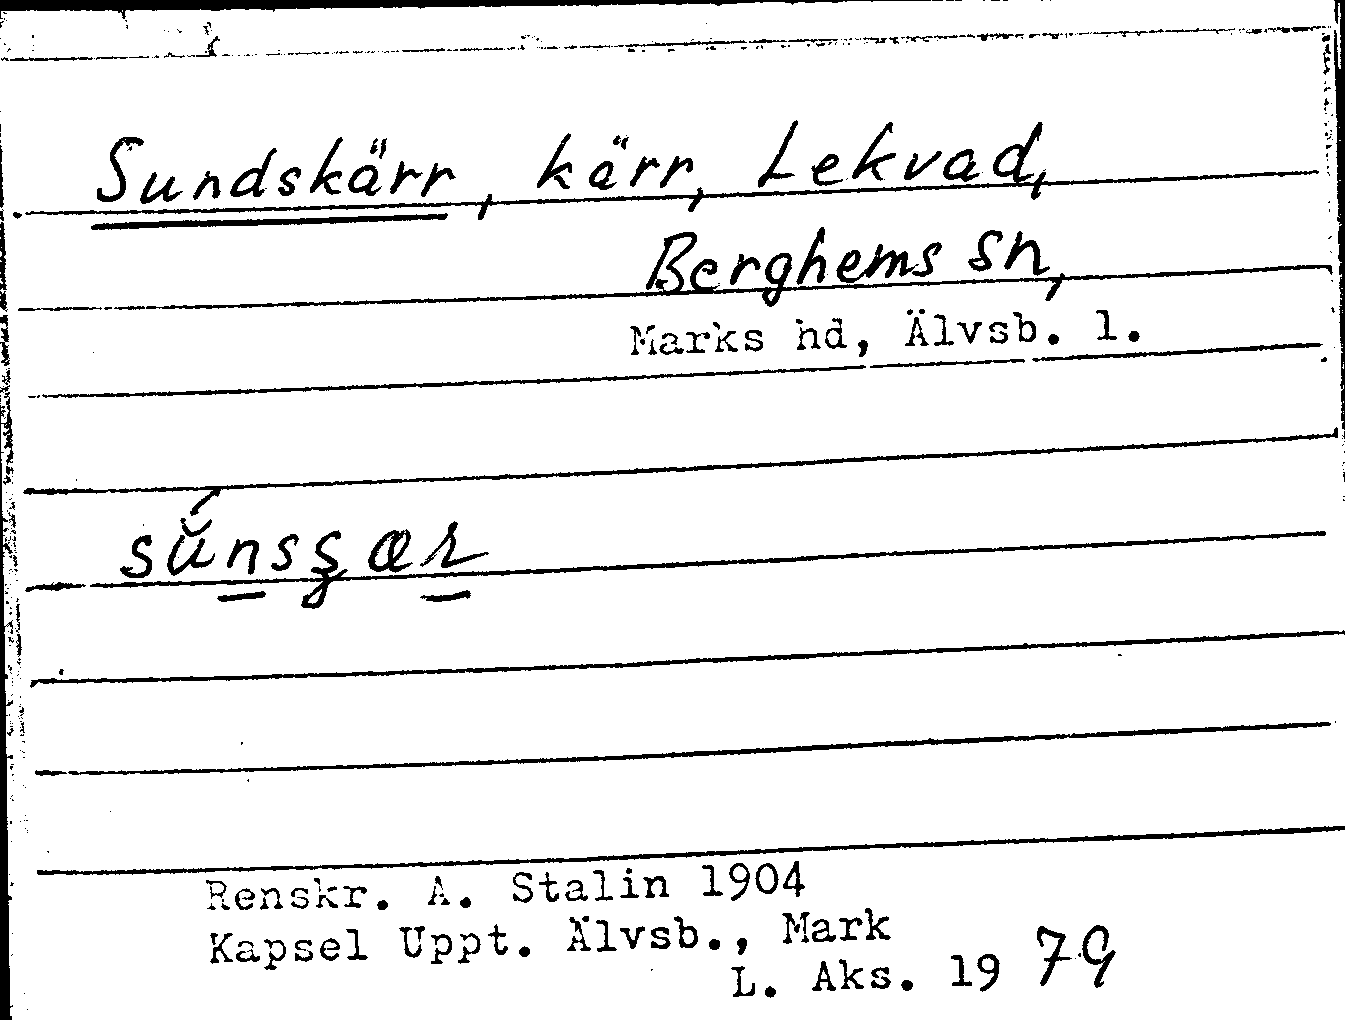 Sundskärr, kärr, Lekvad,
Berghems sn,
Marks hd, Älvsb. l.
Renskr. A. Stalin 1904
Kapsel Uppt. Älvsb., Mark
L. Aks. 1979